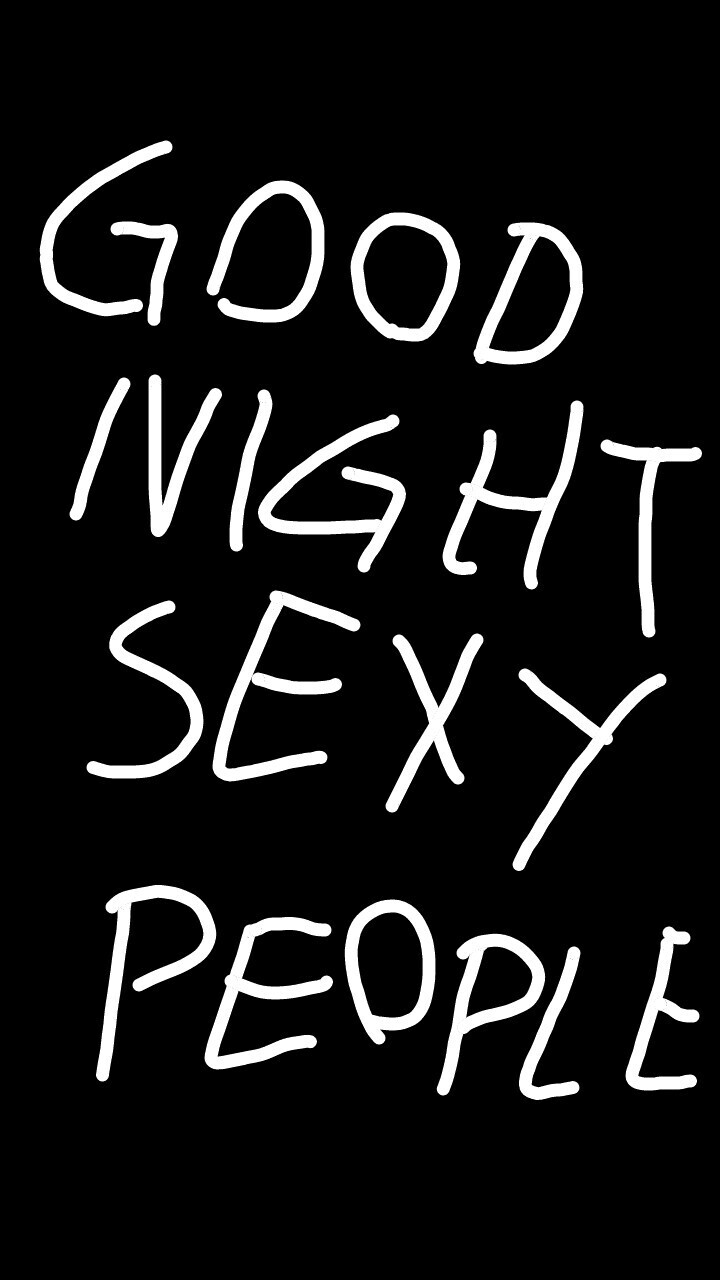 GOOD
NIGHT
SEXY
PEOPLE